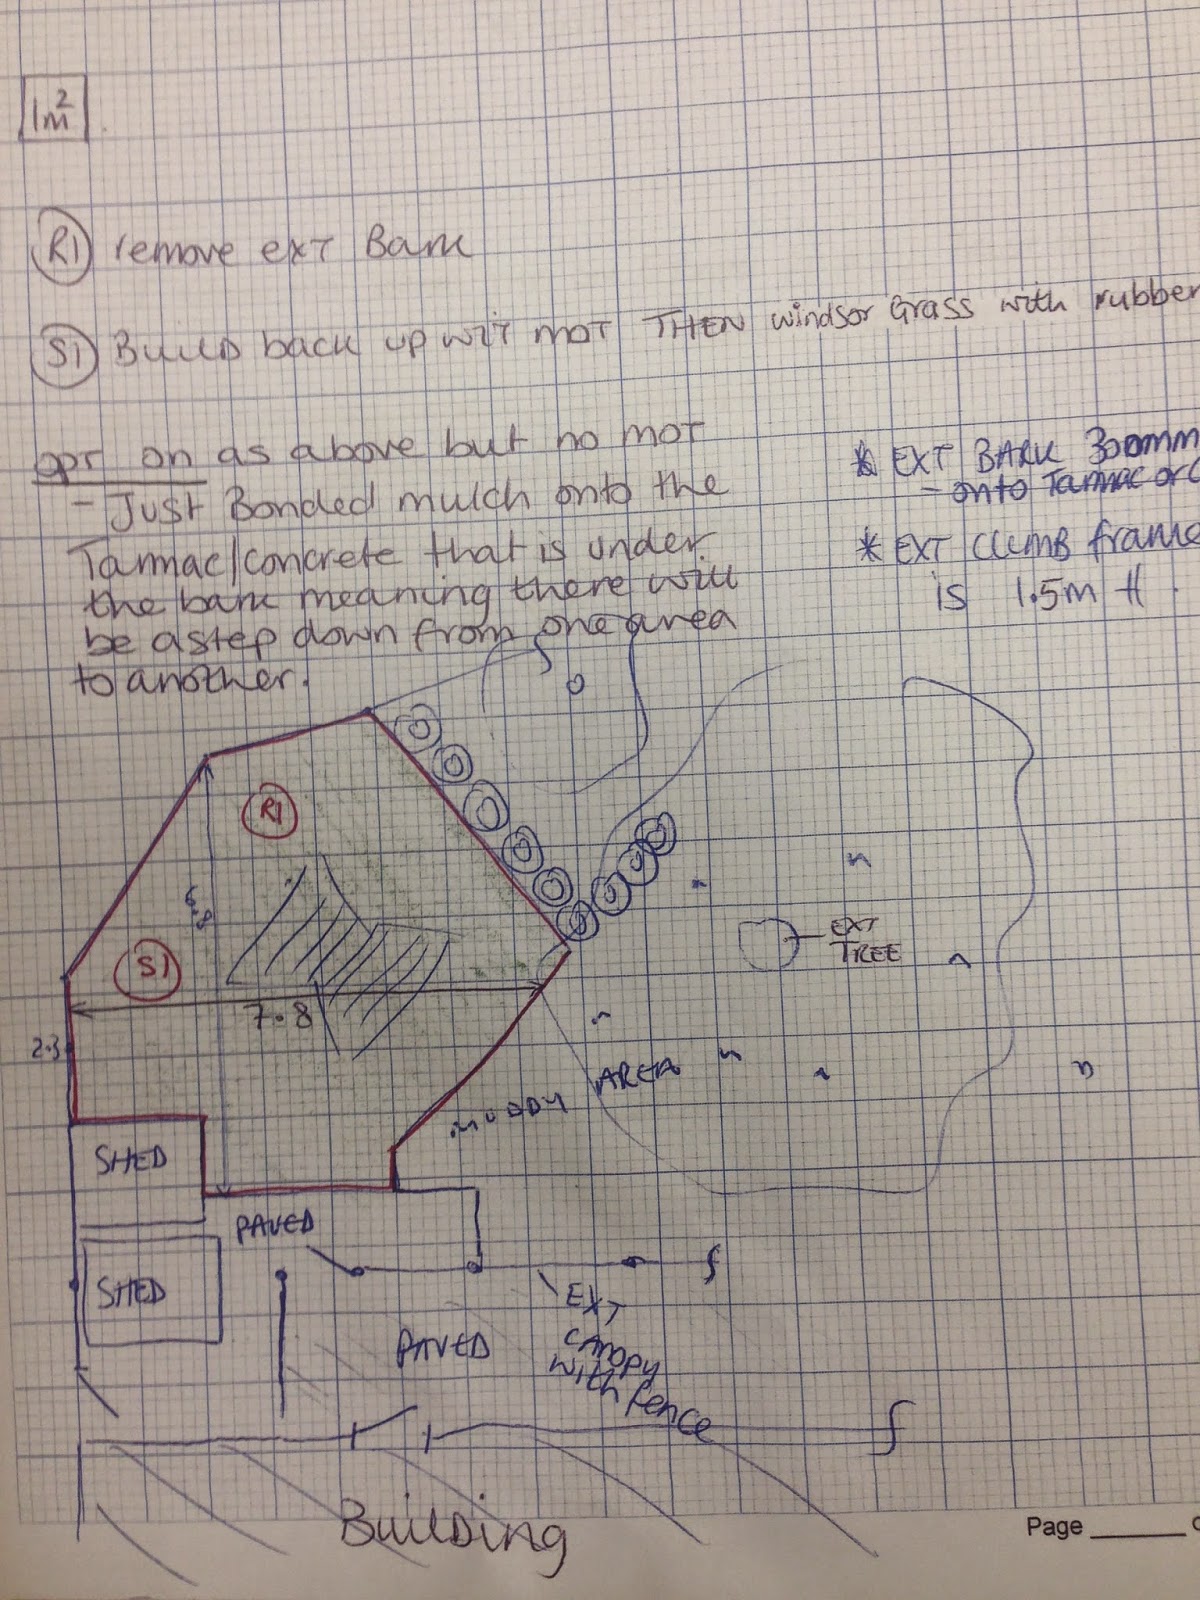 1m²
R1 remove ext Bark
S1 BUILD back up wit mot THEN windsor Grass with rubber
opt on as above but no mot
- Just Bonded mulch onto the
Tarmac/concrete that is under
the bark meaning there will
be a step down from one area
to another.
* EXT BARK 300mm
- onto Tarmac or C
* EXT CLIMB frame
is 1.5m H.
R1
S1
7.8
2.3
EXT
TREE
MUDDY AREA
SHED
PAVED
SHED
PAVED
EXT
canopy
with fence
Building
Page